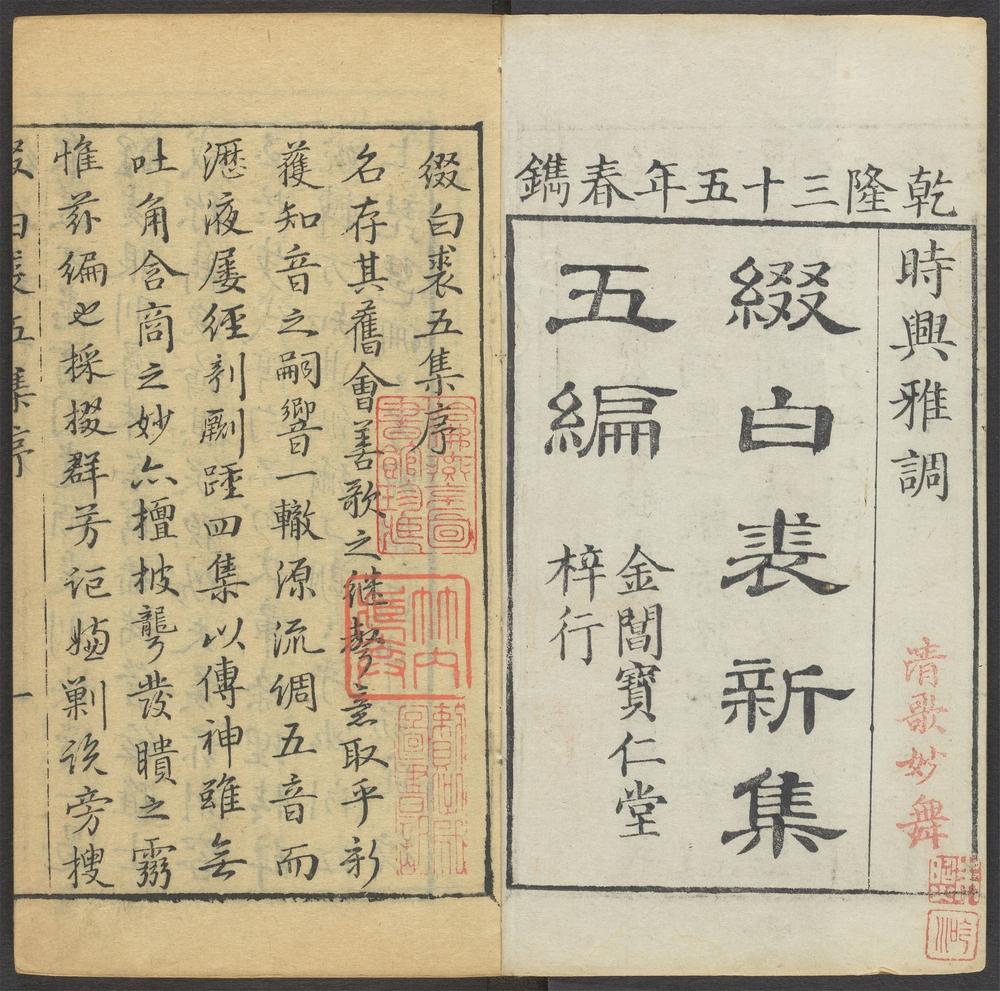 乾隆三十五年春鐫
時興雅調
清歌妙舞
綴白裘新集
五編
金閶寶仁堂
梓行
綴白裘五集序
名存其舊會善歌之继聲意取乎新
獲知音之嗣響一轍源流调五音而
瀝液屡經剞劂踵四集以傳神雖無
吐角含商之妙亦擅披聾發瞶之霛
惟兹编也採掇群芳讵嫌剿说旁搜
綴白裘五集序
一
竹內